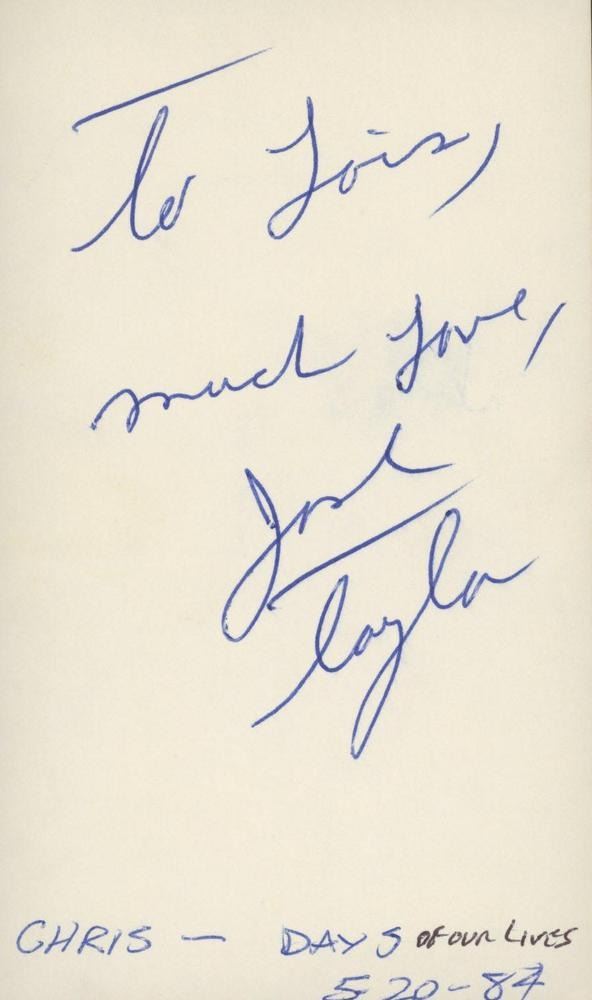 To Lois,
much Love,
Josh
Taylor
CHRIS — DAYS OF OUR LIVES
5-20-84